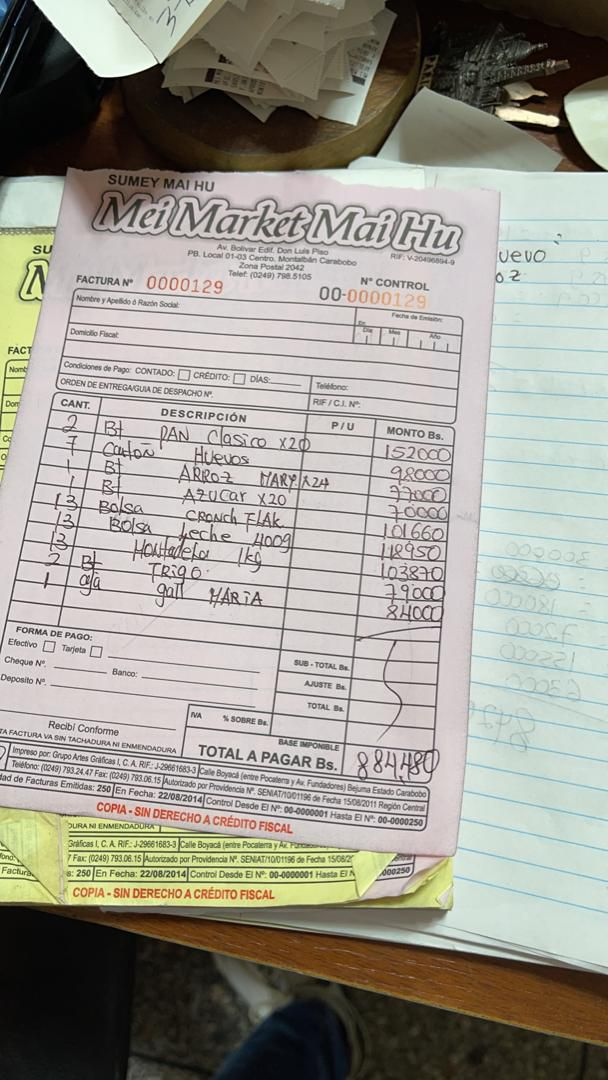 SUMEY MAI HU
Mei Market Mai Hu
Av. Bolivar Edif. Don Luis Piso
PB. Local 01-03 Centro, Montalbán Carabobo
Zona Postal 2042
Telef: (0249) 798.5105
RIF: V-20496894-9
FACTURA Nº 0000129
Nº CONTROL
00-0000129
Nombre y Apellido ó Razón Social:
Fecha de Emisión:
Día Mes Año
Domicilio Fiscal:
Condiciones de Pago: CONTADO: CRÉDITO: DÍAS:
Teléfono:
ORDEN DE ENTREGA/GUIA DE DESPACHO Nº.
RIF / C.I. Nº:
CANT. DESCRIPCIÓN P / U MONTO Bs.
2 Bt PAN Clasico x20 152000
7 Cartoñ Huevos 98000
1 Bt ARROZ MARY x24 77000
1 Bt AZUCAR x20 70000
13 Bolsa CRONCH FLAK 101660
13 Bolsa Leche 400g 118950
13 Mortadela 1kg 103870
2 Bt TRIGO 79000
1 caja gall MARIA 84000
FORMA DE PAGO:
Efectivo Tarjeta
SUB - TOTAL Bs.
Cheque Nº. Banco:
AJUSTE Bs.
Deposito Nº.
TOTAL Bs.
IVA % SOBRE Bs.
BASE IMPONIBLE
Recibí Conforme
TA FACTURA VA SIN TACHADURA NI ENMENDADURA
TOTAL A PAGAR Bs. 884,480
Impreso por: Grupo Artes Gráficas I, C. A. RIF.: J-29661683-3 Calle Boyacá (entre Pocaterra y Av. Fundadores) Bejuma Estado Carabobo
Teléfono: (0249) 793.24.47 Fax: (0249) 793.06.15 Autorizado por Providencia Nº. SENIAT/10/01196 de Fecha 15/08/2011 Región Central
dad de Facturas Emitidas: 250 En Fecha: 22/08/2014 Control Desde El Nº: 00-0000001 Hasta El Nº: 00-0000250
COPIA - SIN DERECHO A CRÉDITO FISCAL
DURA NI ENMENDADURA
Gráficas I, C. A. RIF.: J-29661683-3 Calle Boyacá (entre Pocaterra y Av.
7 Fax: (0249) 793.06.15 Autorizado por Providencia Nº. SENIAT/10/01196 de Fecha 15/08/2
s: 250 En Fecha: 22/08/2014 Control Desde El Nº: 00-0000001 Hasta El N
0000250
COPIA - SIN DERECHO A CRÉDITO FISCAL
SU
FACT
Nomb
uevo
oz